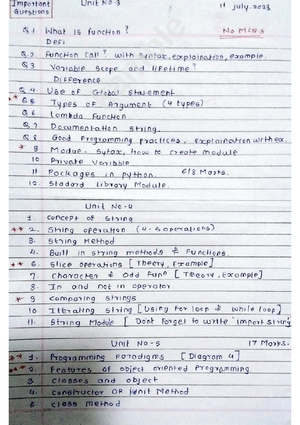 Important Questions
Unit No-3
11 July. 2023
Q.1 What is function?
No MCQ's
Defi
Q.2 Function Call? with Syntax, explaination, example.
Q.3 Variable Scope and lifetime?
Difference
Q.4 Use of Global Statement
** Q5 Types of Argument (4 types)
Q6 Lambda Function.
Q.7 Documentation String.
Q.8 Good Programming practices, explaination with ex.
* 9 Module. Sytax, how to create module
10 Private Variable
11 Packages in python. 6/8 Marks.
12. Stadard Library Module.
Unit No-4
1. Concept of String
** 2. String operation (4-5 operations)
3. String Method
4. Built in string methods & Functions
** 6. Slice operations [Theory, Example]
7. Character & Odd Funn [Theory, Example]
8. In and not in operator
* 9 Comparing strings
10 Iterating String [Using for loop & while loop]
11. String Module [Dont Forget to write 'import string'
Unit No-5
17 Marks.
** 1. Programming Paradigms [Diagram 4]
** 2. Features of object oriented Programming.
3 Classes and object
4. Constructor OR Method
5. Class Method